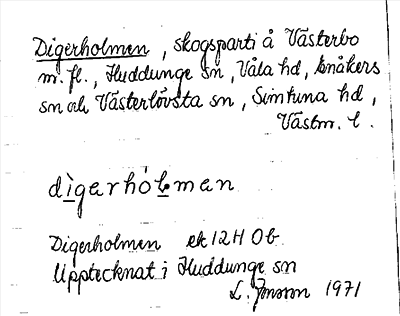 Digerholmen, skogsparti å Västerbo
m. fl., Huddunge sn, Våla hd, Enåkers
sn och Västerlövsta sn, Simtuna hd,
Västm. l.
digerholmen
Digerholmen ek 12H Ob
Upptecknat i Huddunge sn
L. Jonsson 1971